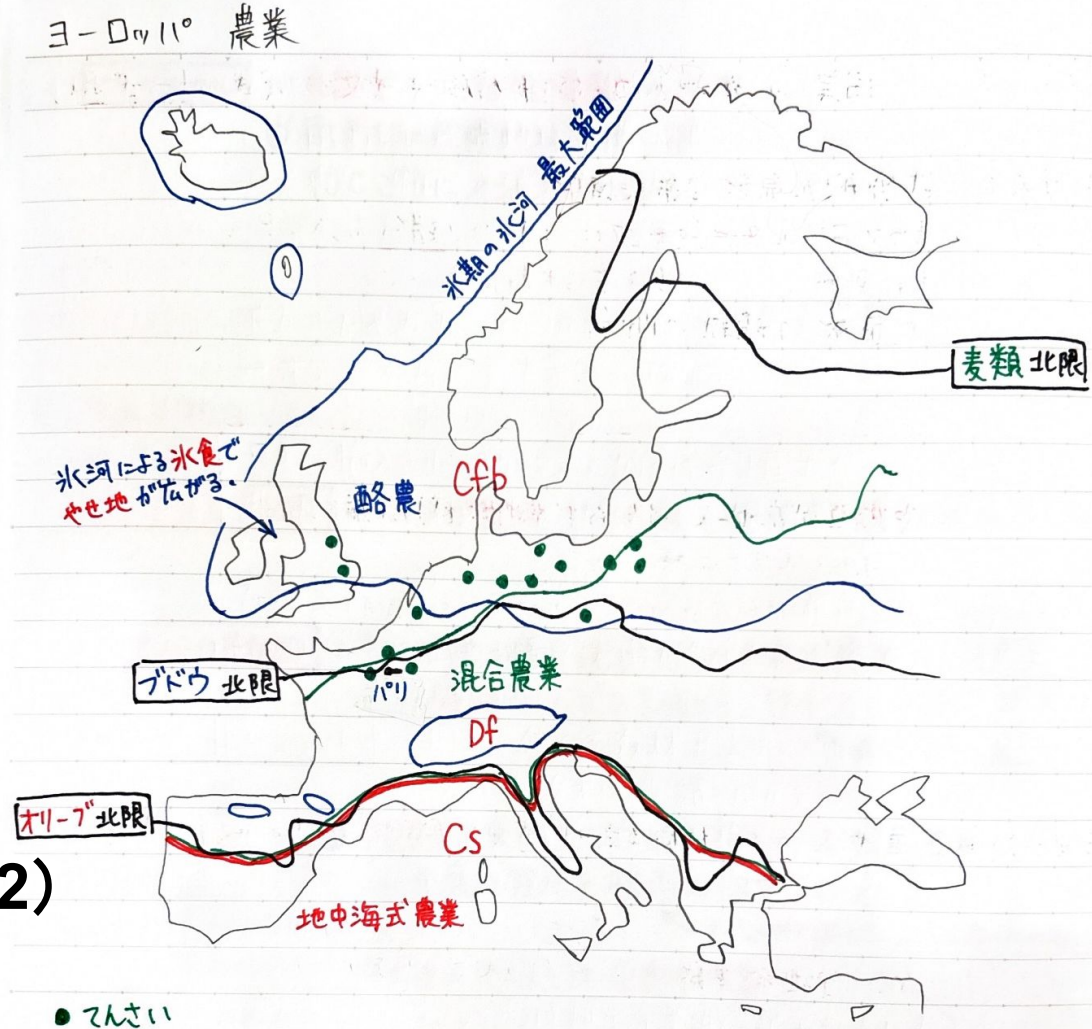 ヨーロッパ 農業
氷期の氷河 最大範囲
麦類 北限
氷河による氷食で
やせ地が広がる。
酪農
Cfb
ブドウ 北限
パリ
混合農業
Df
オリーブ 北限
Cs
2)
地中海式農業
● てんさい